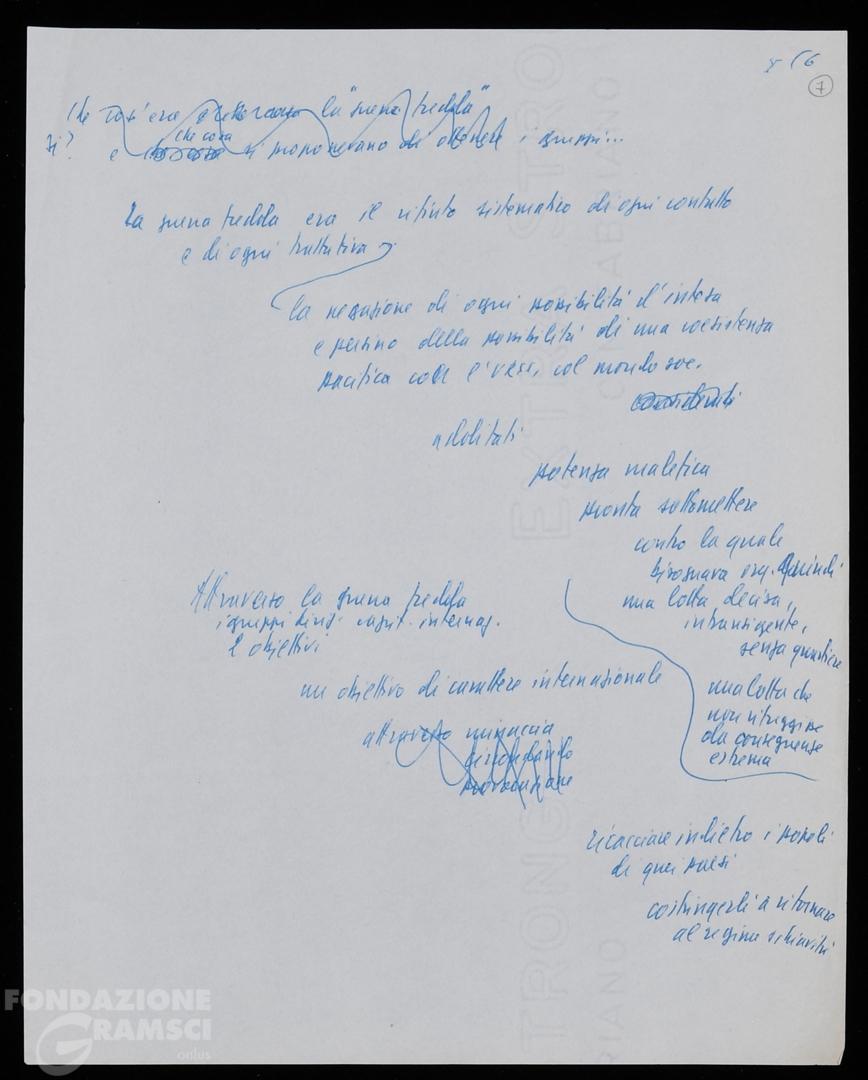 7
Che cos'era la "guerra fredda"
che cosa
e si proponevano di ottenere i gruppi...
La guerra fredda era il rifiuto sistematico di ogni contatto
e di ogni trattativa
la negazione di ogni possibilità d'intesa
e persino della possibilità di una coesistenza
pacifica con l'URSS, col mondo soc.
additati
potenza malefica
pronta sottomettere
contro la quale
bisognava org. Quindi
una lotta decisa,
intransigente,
senza quartiere
una lotta che
non rifuggisse
da conseguenze
estreme
Attraverso la guerra fredda
i gruppi dirig. capit. internaz.
2 obiettivi
un obiettivo di carattere internazionale
attraverso minaccia
provocazione
ricacciare indietro i popoli
di quei paesi
costringerli a ritornare
al regime schiavitù
EXTRA STRONG
FABRIANO
STRONG
FONDAZIONE
GRAMSCI
onlus